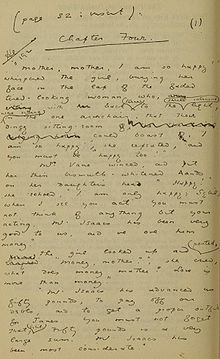 (page 32: insert) (1)
Chapter Four.
"Mother, mother, I am so happy,"
whispered the girl, burying her
face in the lap of the faded
tired-looking woman, who,
with her back to the light,
one armchair that their
dingy sitting-room
could boast of. "I
am so happy", she repeated, "and
you must be happy too."
Mrs Vane winced, and put
her thin bismuth-whitened hands
on her daughter's head. "Happy,"
she echoed, "I am only happy, Sibyl,
when I see you act. You must
not think of anything but your
acting. Mr. Isaacs has been very
good to us and we owe him
money."
The girl looked up and pouted,
"Money, mother," she cried,
"what does money matter? Love is
more than money."
"Mr. Isaacs has advanced us
fifty pounds, to pay off our
debts and to get a proper outfit
for James. You must not forget
that. Fifty pounds is a very
large sum. Mr Isaacs has
been most considerate."